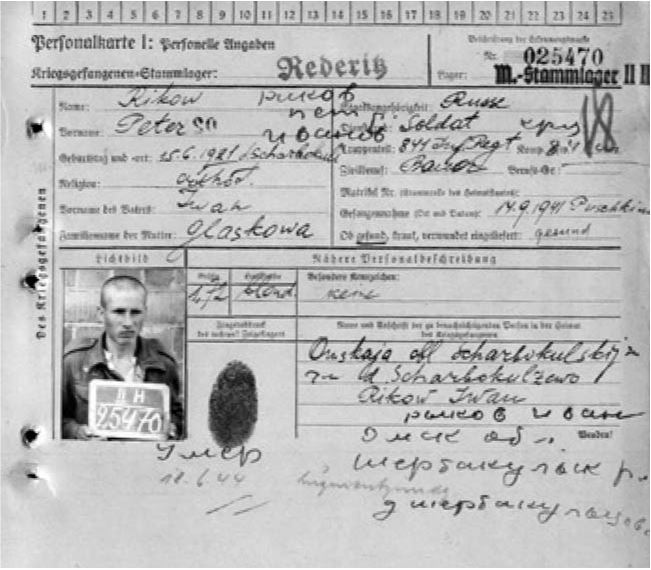 1 2 3 4 5 6 7 8 9 10 11 12 13 14 15 16 17 18 19 20 21 22 23 24 25
Personalkarte I: Personelle Angaben
Beschriftung der Erkennungsmarke
Kriegsgefangenen-Stammlager: Rederitz
Nr. 025470
Lager: M.-Stammlager II H
Des Kriegsgefangenen
Name: Rikow рыков
Staatsangehörigkeit: Russe
Vorname: Peter
Dienstgrad: Soldat
Truppenteil: 841 Inf. Regt Komp.
Geburtstag und -ort: 25.6.1921
Zivilberuf: Bauer Berufs-Gr.:
Religion: orthod.
Matrikel Nr.
Vorname des Vaters: Iwan
Gefangennahme (Ort und Datum): 14.9.1941 Puschkin
Familienname der Mutter: Glaskowa
Ob gesund, krank, verwundet eingeliefert: gesund
Lichtbild
Nähere Personalbeschreibung
Größe
Haarfarbe
Besondere Kennzeichen:
blond
keine
Fingerabdruck
des rechten Zeigefingers
Name und Anschrift der zu benachrichtigenden Person in der Heimat
des Kriegsgefangenen
II H
25470
Omskaja obl Scharbokulskij
d Scharbokulzewo
Rikow Iwan
рыков иван
Омск об
Wenden!
умер
18.6.44
шербакульск р.
д шербакульцово